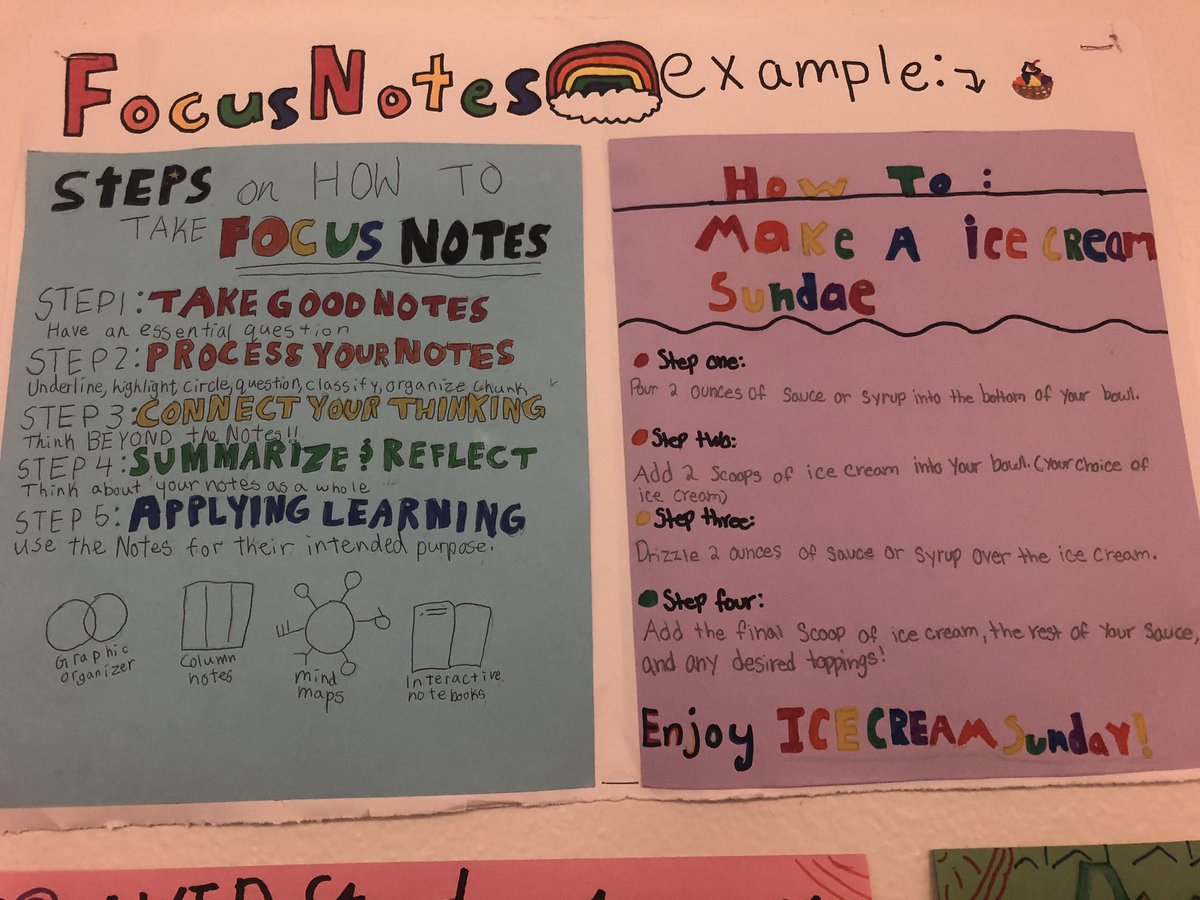 Focus Notes example:
STEPS on HOW TO
TAKE FOCUS NOTES
STEP 1: TAKE GOOD NOTES
Have an essential question
STEP 2: PROCESS YOUR NOTES
Underline, highlight, circle, question, classify, organize chunk
STEP 3: CONNECT YOUR THINKING
Think BEYOND the Notes!!
STEP 4: SUMMARIZE & REFLECT
Think about your notes as a whole
STEP 5: APPLYING LEARNING
use the Notes for their intended purpose.
Graphic
organizer
Column
notes
mind
maps
Interactive
notebooks
How To:
Make A ice cream
Sundae
Step one:
Pour 2 ounces of sauce or syrup into the bottom of your bowl.
Step two:
Add 2 scoops of ice cream into your bowl. (your choice of
ice cream)
Step three:
Drizzle 2 ounces of sauce or syrup over the ice cream.
Step four:
Add the final scoop of ice cream, the rest of your sauce,
and any desired toppings!
Enjoy ICE CREAM Sunday!